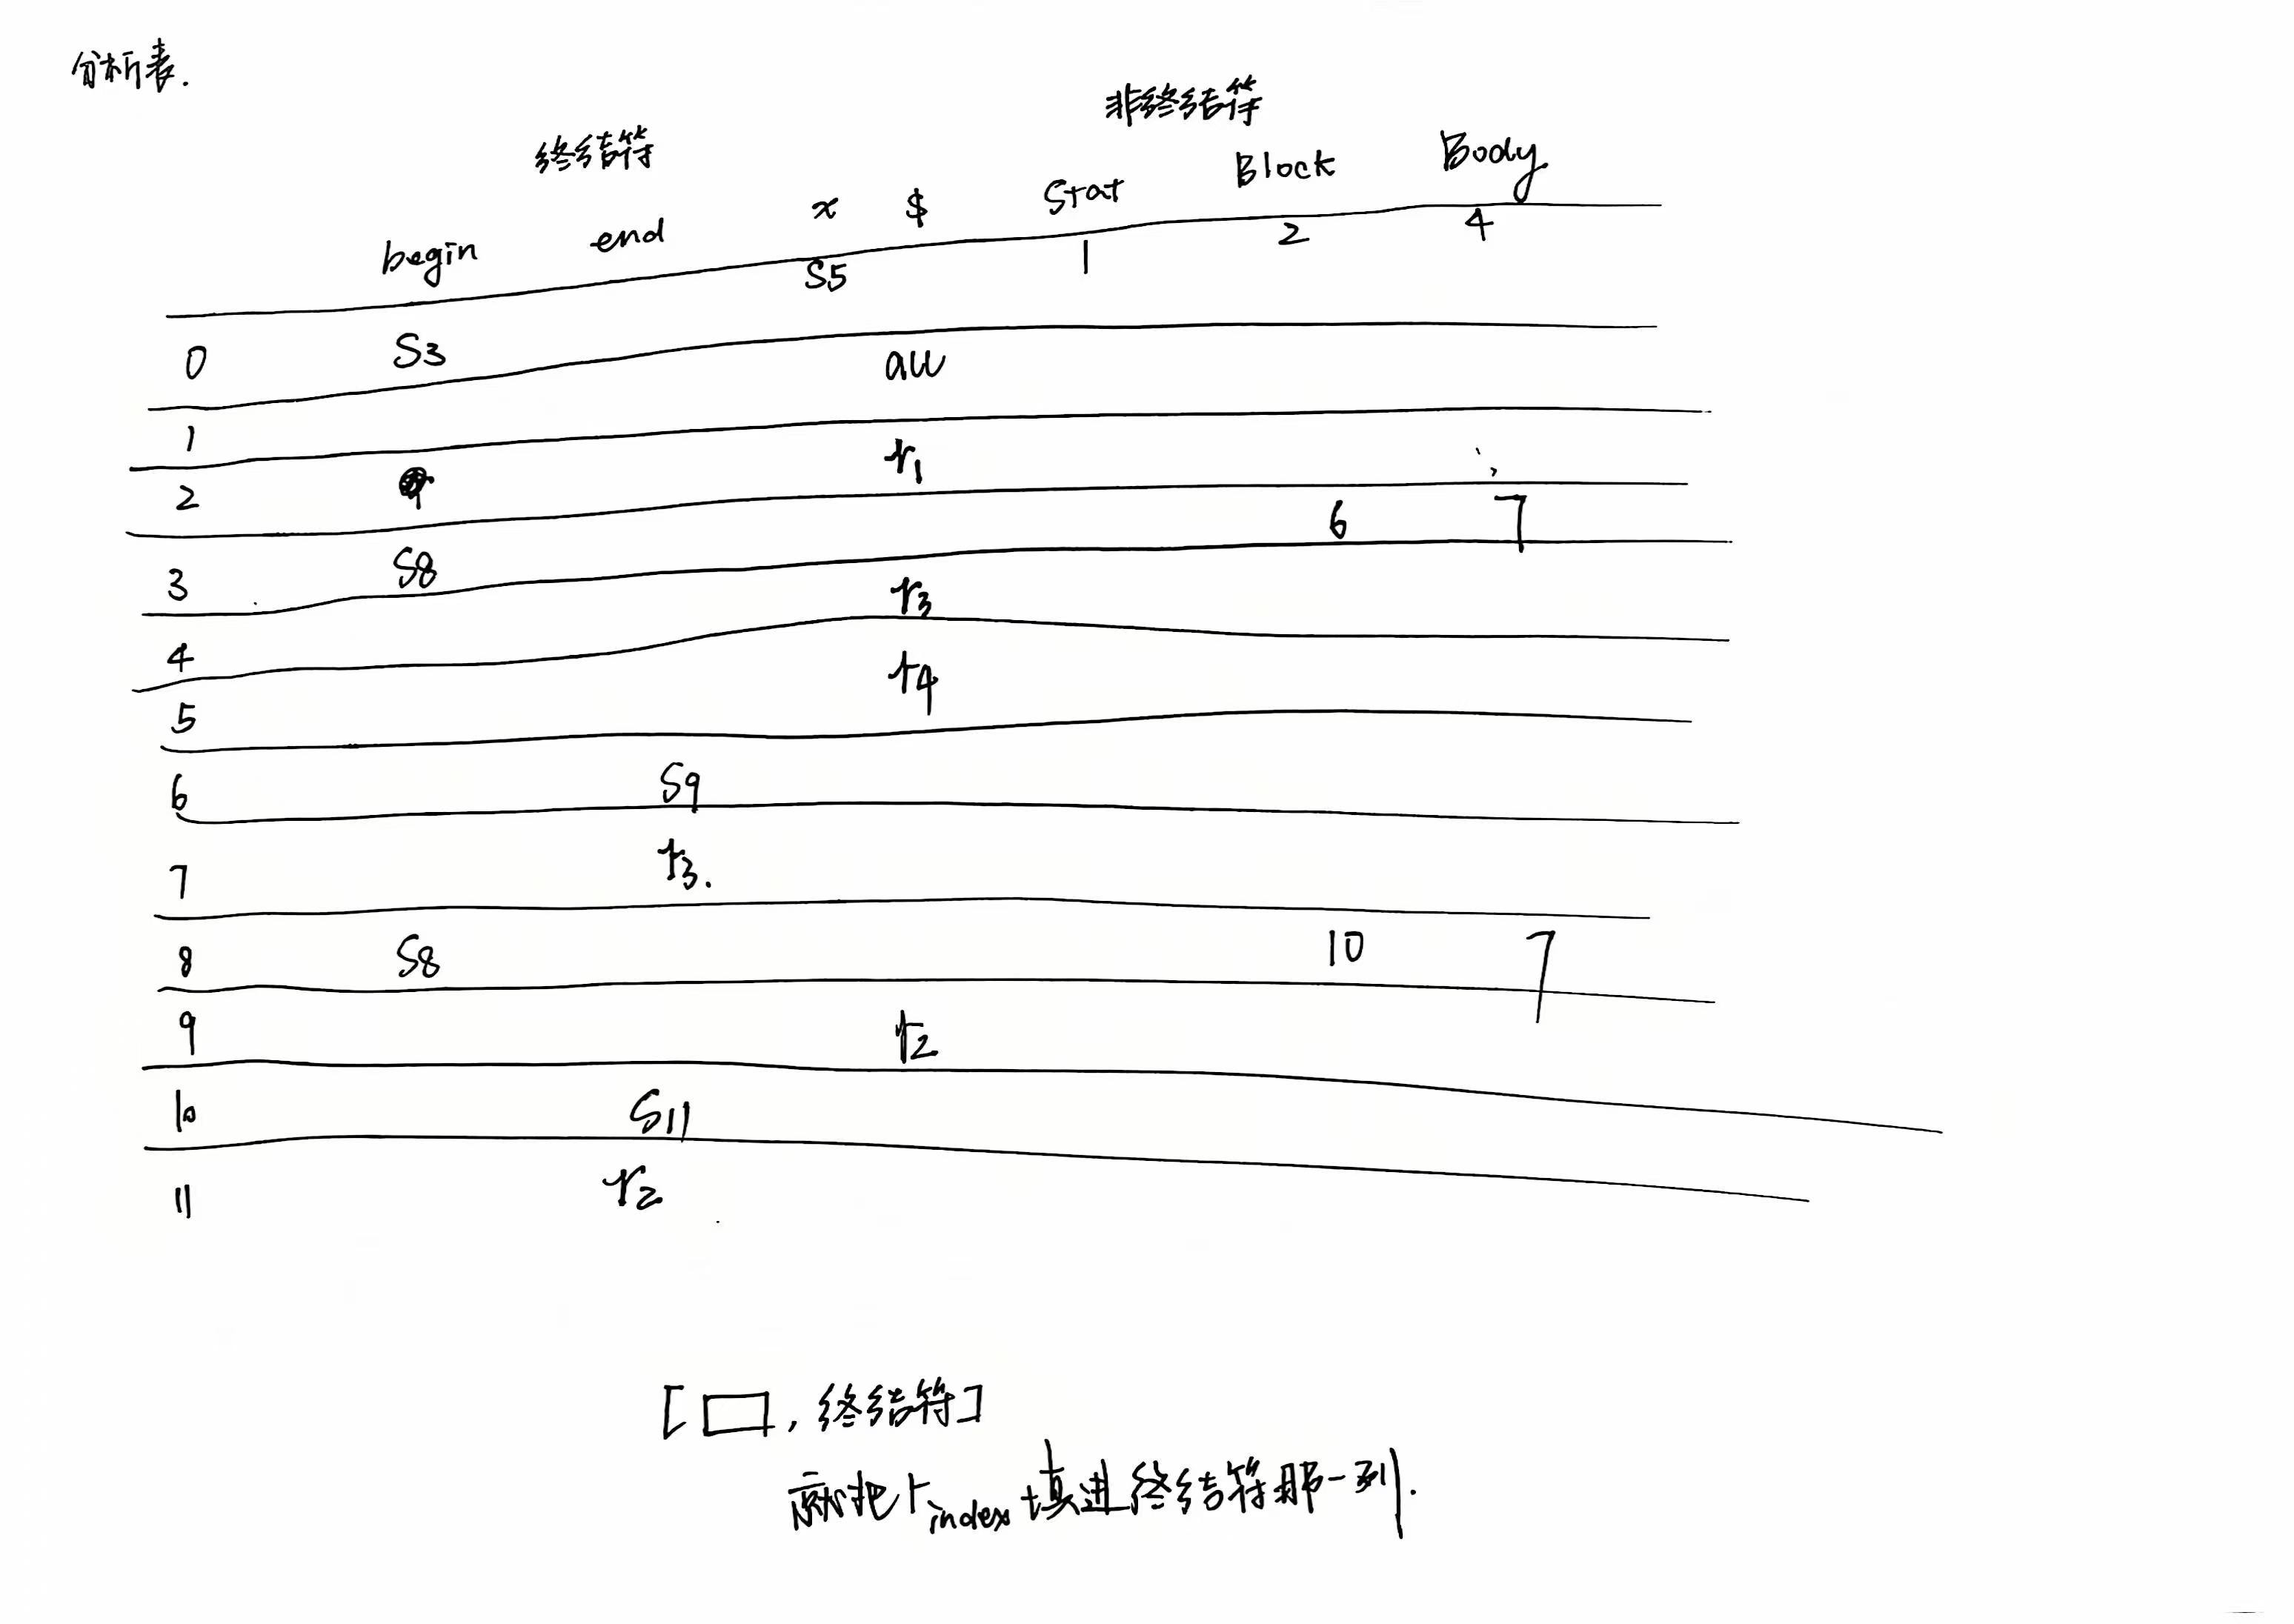 分析表.
终结符 非终结符
begin end x $ Stat Block Body
0 S3 S5 1 2 4
1 acc
2 r1
3 S8 6 7
4 r3
5 r4
6 S9
7 r3.
8 S8 10 7
9 r2
10 S11
11 r2
[□, 终结符]
就把rindex填进终结符那一列.